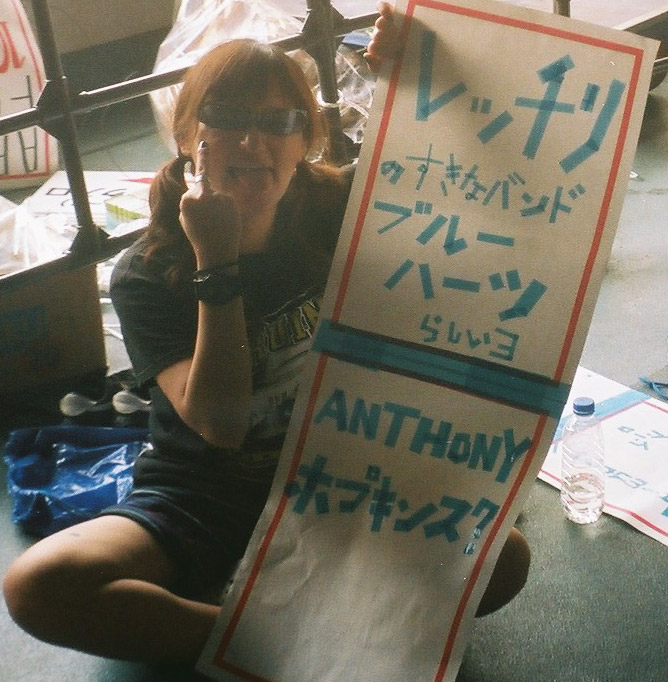 レッチリ
のすきなバンド
ブルー
ハーツ
らしいヨ
ANTHONY
ホプキンス?